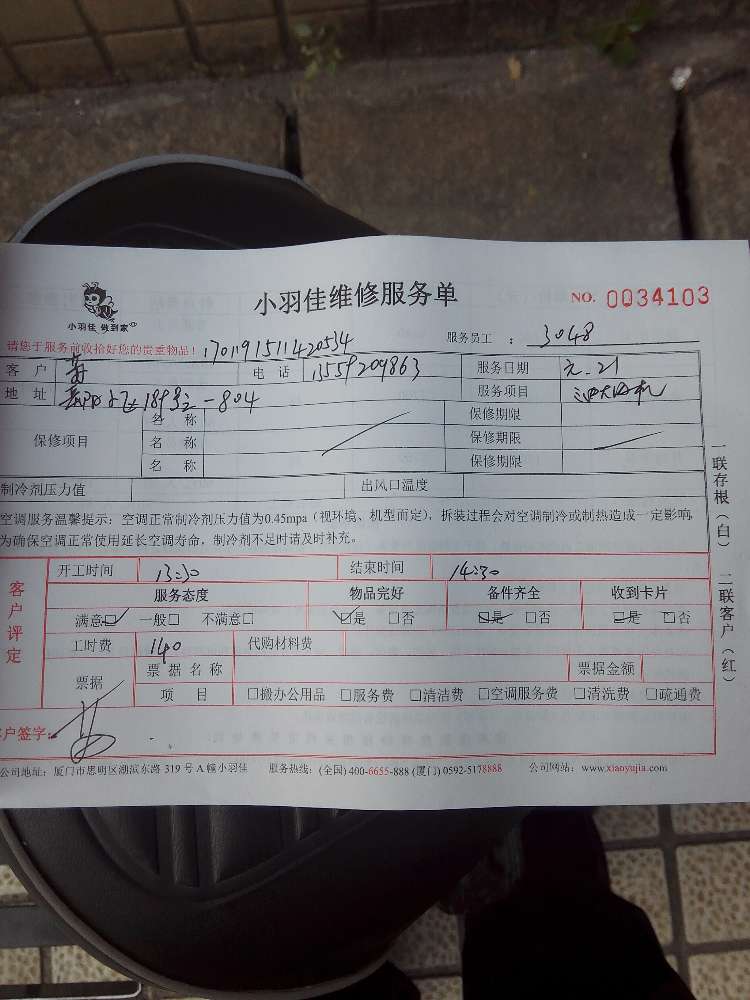 小羽佳维修服务单
NO. 0034103
小羽佳 做到家
请您于服务前收拾好您的贵重物品！ 170119151142053​4 服务员工 ： 3048
客 户 电 话 13559209863 服务日期 元.21
地 址 189号 -804 服务项目 油烟机
保修项目 名 称 保修期限
名 称 保修期限
名 称 保修期限
制冷剂压力值 出风口温度
空调服务温馨提示：空调正常制冷剂压力值为0.45mpa（视环境、机型而定），拆装过程会对空调制冷或制热造成一定影响，
为确保空调正常使用延长空调寿命，制冷剂不足时请及时补充。
客户评定
开工时间 13:30 结束时间 14:30
服务态度 物品完好 备件齐全 收到卡片
满意☑ 一般□ 不满意□ ☑是 □否 ☑是 □否 ☑是 □否
工时费 140 代购材料费
票据 票 据 名 称 票据金额
项 目 □搬办公用品 □服务费 □清洁费 □空调服务费 □清洗费 □疏通费
客户签字：
公司地址：厦门市思明区湖滨东路 319 号 A 幢小羽佳 服务热线：(全国) 400-6655-888 (厦门) 0592-5178888 公司网站：www.xiaoyujia.com
一联存根（白） 二联客户（红）